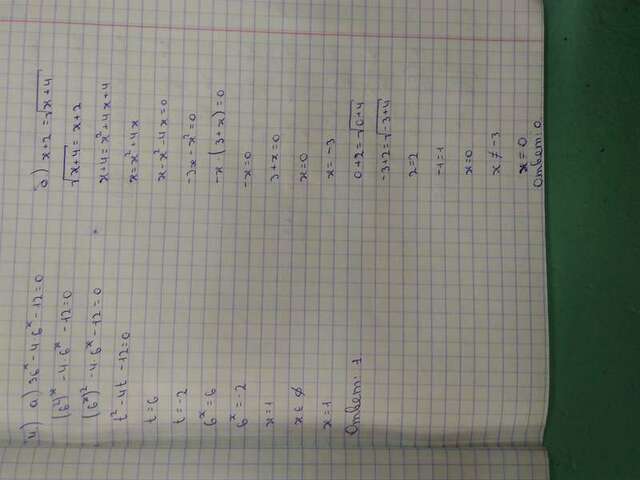 4) а) 36ˣ - 4·6ˣ - 12 = 0
(6²)ˣ - 4·6ˣ - 12 = 0
(6ˣ)² - 4·6ˣ - 12 = 0
t² - 4t - 12 = 0
t = 6
t = -2
6ˣ = 6
6ˣ = -2
x = 1
x ∈ ∅
x = 1
Ответ: 1
б) x + 2 = √x + 4
√x + 4 = x + 2
x + 4 = x² + 4x + 4
x = x² + 4x
x - x² - 4x = 0
-3x - x² = 0
-x (3 + x) = 0
-x = 0
3 + x = 0
x = 0
x = -3
0 + 2 = √0 + 4
-3 + 2 = √-3 + 4
2 = 2
-1 = 1
x = 0
x ≠ -3
x = 0
Ответ: 0